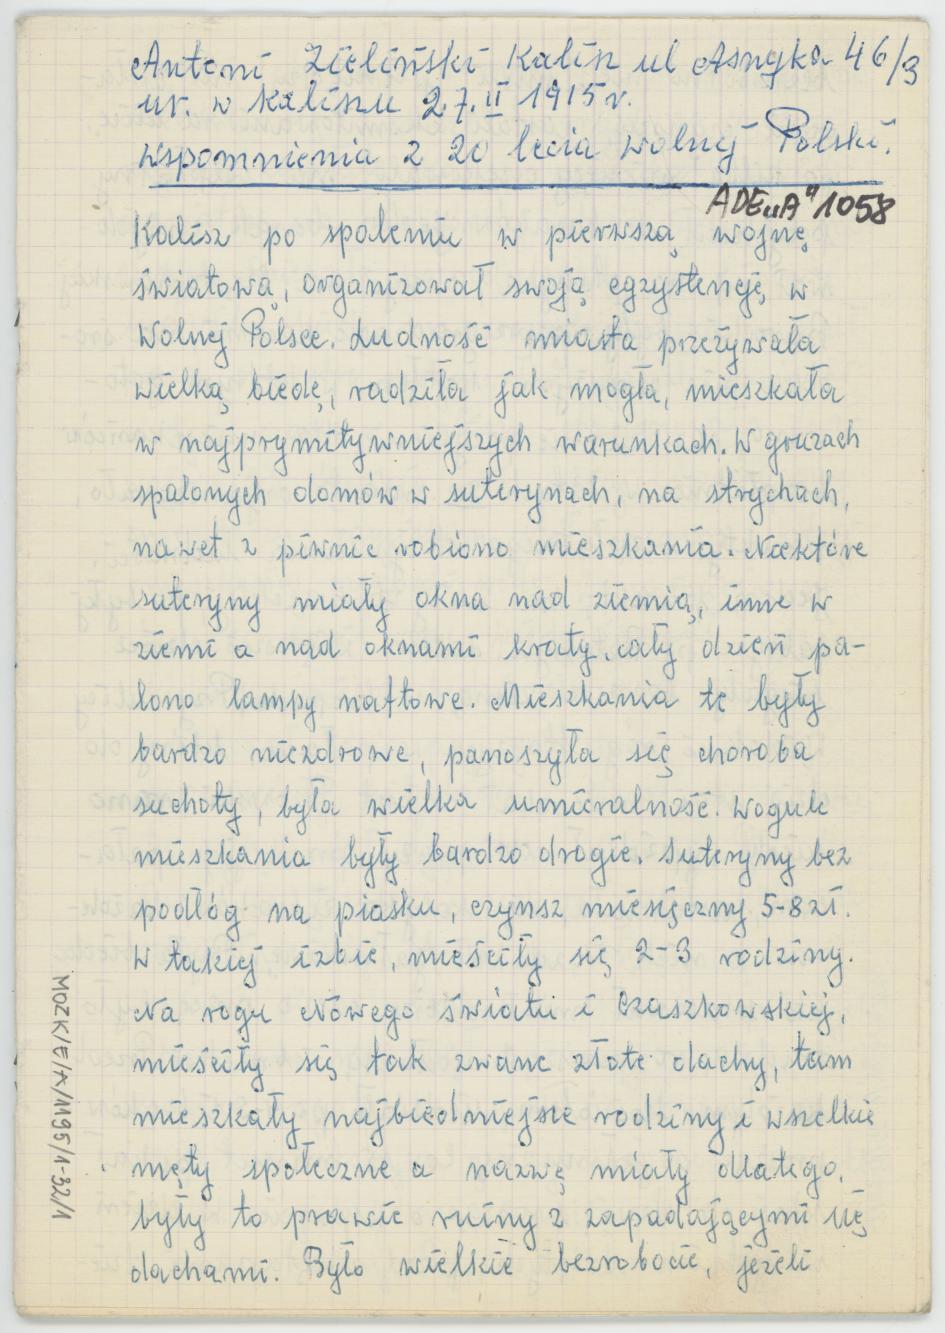 Antoni Zieliński Kalisz ul Asnyka 46/3
ur. w Kaliszu 27. II 1915 r.
wspomnienia z 20 lecia wolnej Polski.
ADEuA" 1058
Kalisz po spaleniu w pierwszą wojnę
światową, organizował swoją egzystencję w
Wolnej Polsce. Ludność miasta przeżywała
wielką biedę, radziła jak mogła, mieszkała
w najprymitywniejszych warunkach. W gruzach
spalonych domów w suterynach, na strychach,
nawet z piwnic robiono mieszkania. Niektóre
suteryny miały okna nad ziemią, inne w
ziemi a nad oknami kraty, cały dzień pa-
lono lampy naftowe. Mieszkania te były
bardzo niezdrowe, panoszyła się choroba
suchoty, była wielka umieralność. Wogule
mieszkania były bardzo drogie. Suteryny bez
podłóg na piasku, czynsz miesięczny 5-8 zł.
W takiej izbie, mieściły się 2-3 rodziny.
Na rogu Nowego Światu i Czaszkowskiej,
mieściły się tak zwane złote dachy, tam
mieszkały najbiedniejsze rodziny i wszelkie
męty społeczne a nazwę miały dlatego,
były to prawie ruiny z zapadającymi się
dachami. Było wielkie bezrobocie, jeżeli
MOZK/E/A/1195/1-32/1